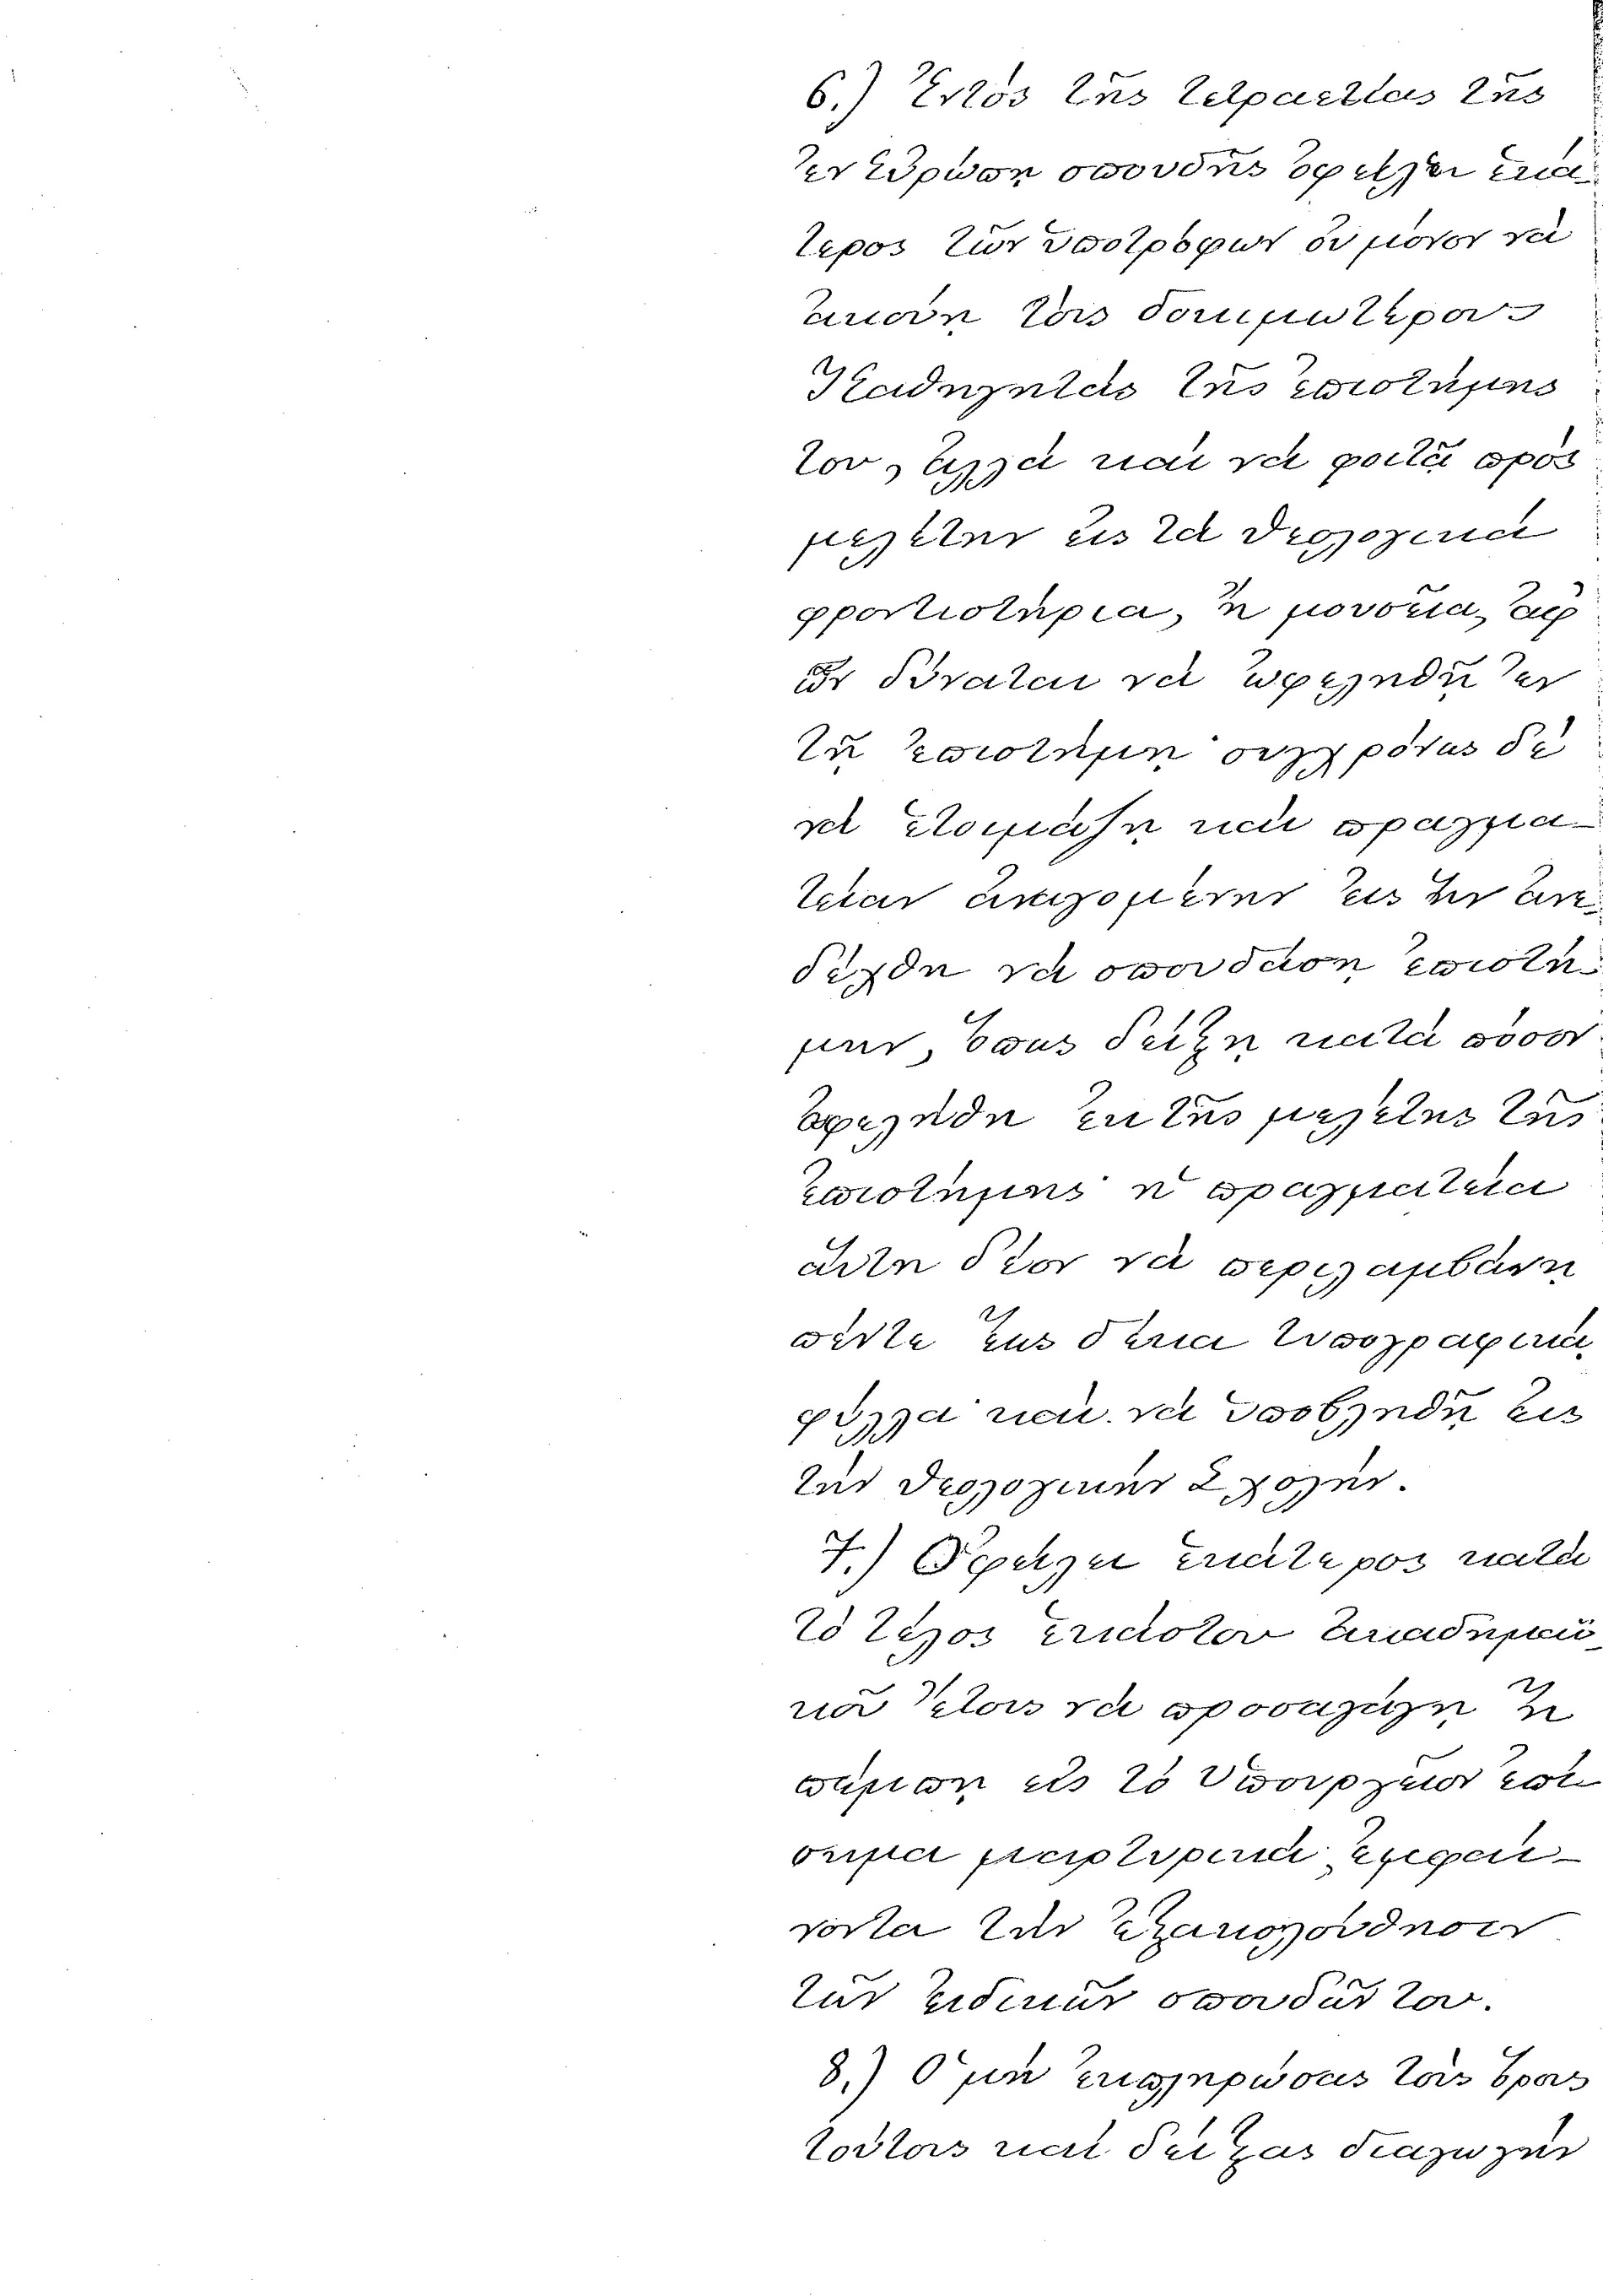 6.) Ἐντὸς τῆς τετραετίας τῆς
ἐν Εὐρώπῃ σπουδῆς ὀφείλει ἑκά-
τερος τῶν ὑποτρόφων οὐ μόνον νὰ
ἀκούῃ τοὺς δοκιμωτέρους
Καθηγητὰς τῆς ἐπιστήμης
του, ἀλλὰ καὶ νὰ φοιτᾷ πρὸς
μελέτην εἰς τὰ Θεολογικὰ
φροντιστήρια, ἢ μουσεῖα, ἀφ'
ὧν δύναται νὰ ὠφεληθῇ ἐν
τῇ ἐπιστήμῃ· συγχρόνως δὲ
νὰ ἑτοιμάσῃ καὶ πραγμα-
τείαν ἀναγομένην εἰς ἣν ἀνε-
δέχθη νὰ σπουδάσῃ ἐπιστή-
μην, ὅπως δείξῃ κατὰ πόσον
ὠφελήθη ἐκ τῆς μελέτης τῆς
ἐπιστήμης· ἡ πραγματεία
αὕτη δέον νὰ περιλαμβάνῃ
πέντε ἕως δέκα τυπογραφικὰ
φύλλα καὶ νὰ ὑποβληθῇ εἰς
τὴν Θεολογικὴν Σχολήν.
7.) Ὀφείλει ἑκάτερος κατὰ
τὸ τέλος ἑκάστου ἀκαδημαϊ-
κοῦ ἔτους νὰ προσαγάγῃ ἢ
πέμπῃ εἰς τὸ Ὑπουργεῖον ἐπί-
σημα μαρτυρικὰ ἐμφαί-
νοντα τὴν ἐξακολούθησιν
τῶν εἰδικῶν σπουδῶν του.
8.) Ὁ μὴ ἐκπληρώσας τοὺς ὅρους
τούτους καὶ δείξας διαγωγὴν